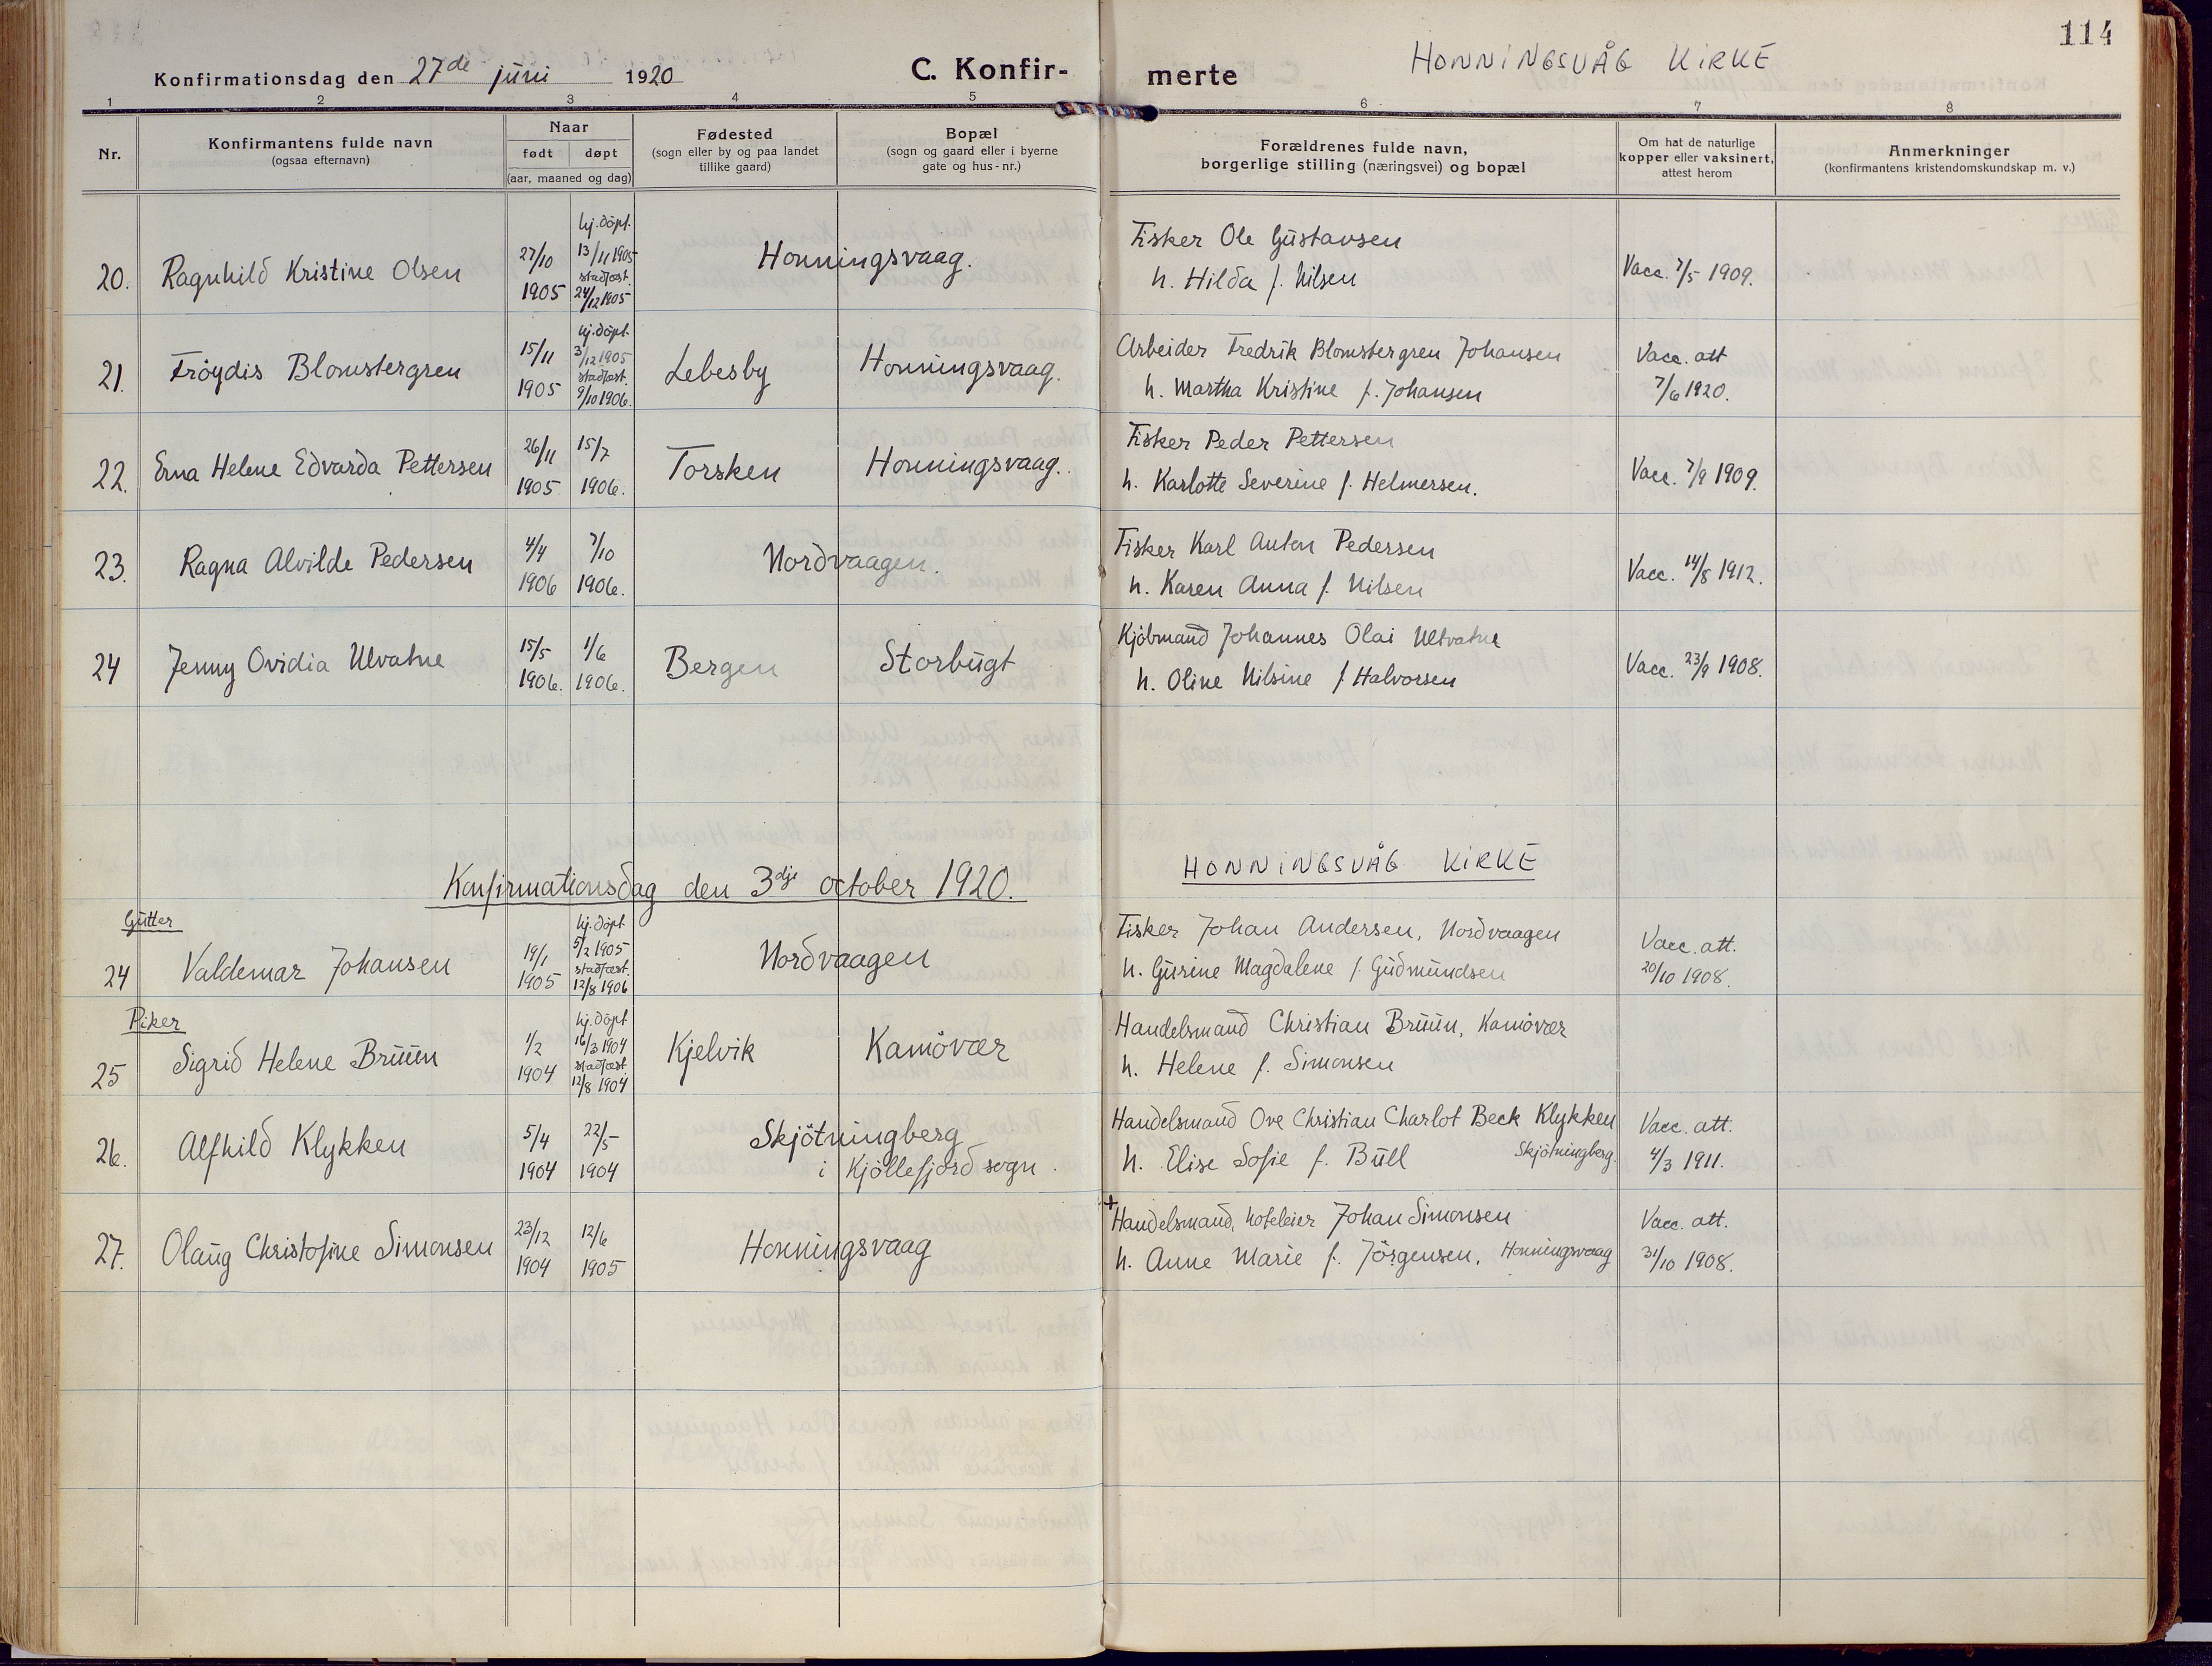 114
HONNINGSVÅG KIRKE
Konfirmationsdag den 27de juni 1920
C. Konfir- merte
1 2 3 4 5 6 7 8
Nr.
Konfirmantens fulde navn
(ogsaa efternavn)
Naar
født døpt
(aar, maaned og dag)
Fødested
(sogn eller by og paa landet
tillike gaard)
Bopæl
(sogn og gaard eller i byerne
gate og hus-nr.)
Forældrenes fulde navn,
borgerlige stilling (næringsvei) og bopæl
Om hat de naturlige
kopper eller vaksinert,
attest herom
Anmerkninger
(konfirmantens kristendomskundskap m. v.)
20. Ragnhild Kristine Olsen
27/10
1905
hj. döpt.
13/11 1905
stadfæst.
24/12 1905
Honningsvaag.
Fisker Ole Gustavsen
h. Hilda f. Nilsen
Vacc. 7/5 1909.
21. Fröydis Blomstergren
15/11
1905
hj. döpt.
3/12 1905
stadfæst.
9/10 1906.
Lebesby
Honningsvaag.
Arbeider Fredrik Blomstergren Johansen
h. Martha Kristine f. Johansen
Vacc. att
7/6 1920.
22. Erna Helene Edvarda Pettersen
26/11
1905
15/7
1906.
Torsken
Honningsvaag.
Fisker Peder Pettersen
h. Karlotte Severine f. Helmersen.
Vacc. 7/9 1909.
23. Ragna Alvilde Pedersen
4/4
1906
7/10
1906.
Nordvaagen.
Fisker Karl Anton Pedersen
h. Karen Anna f. Nilsen
Vacc. 14/8 1912.
24 Jenny Ovidia Ulvatne
15/5
1906.
1/6
1906.
Bergen
Storbugt
Kjöbmand Johannes Olai Ulvatne
h. Oline Nilsine f Halvorsen
Vacc. 23/9 1908.
Konfirmationsdag den 3dje october 1920.
HONNINGSVÅG KIRKE
Gutter
24 Valdemar Johansen
19/1
1905
hj. döpt
5/2 1905
stadfæst.
12/8 1906
Nordvaagen
Fisker Johan Andersen, Nordvaagen
h. Gurine Magdalene f. Gudmundsen
Vacc. att.
20/10 1908.
Piker
25 Sigrid Helene Bruun
1/2
1904
hj. döpt
16/3 1904
stadfæst
12/8 1904
Kjelvik
Kamövær
Handelsmand Christian Bruun, Kamövær
h. Helene f. Simonsen
26. Alfhild Klykken
5/4
1904
22/5
1904
Skjötningberg
i Kjöllefjord sogn.
Handelsmand Ove Christian Charlot Beck Klykken
h. Elise Sofie f. Bull Skjötningberg.
Vacc. att.
4/3 1911.
27. Olaug Christofine Simonsen
23/12
1904
12/6
1905
Honningsvaag
+ Handelsmand, hoteleier Johan Simonsen
h. Anne Marie f. Jörgensen, Honningsvaag
Vacc. att.
31/10 1908.